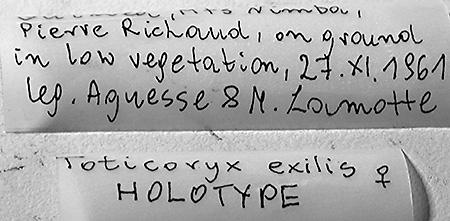 Mts Nimba,
Pierre Richaud, on ground
in low vegetation, 27.XI.1961
leg. Aguesse & M. Lamotte
Toticoryx exilis ♀
HOLOTYPE